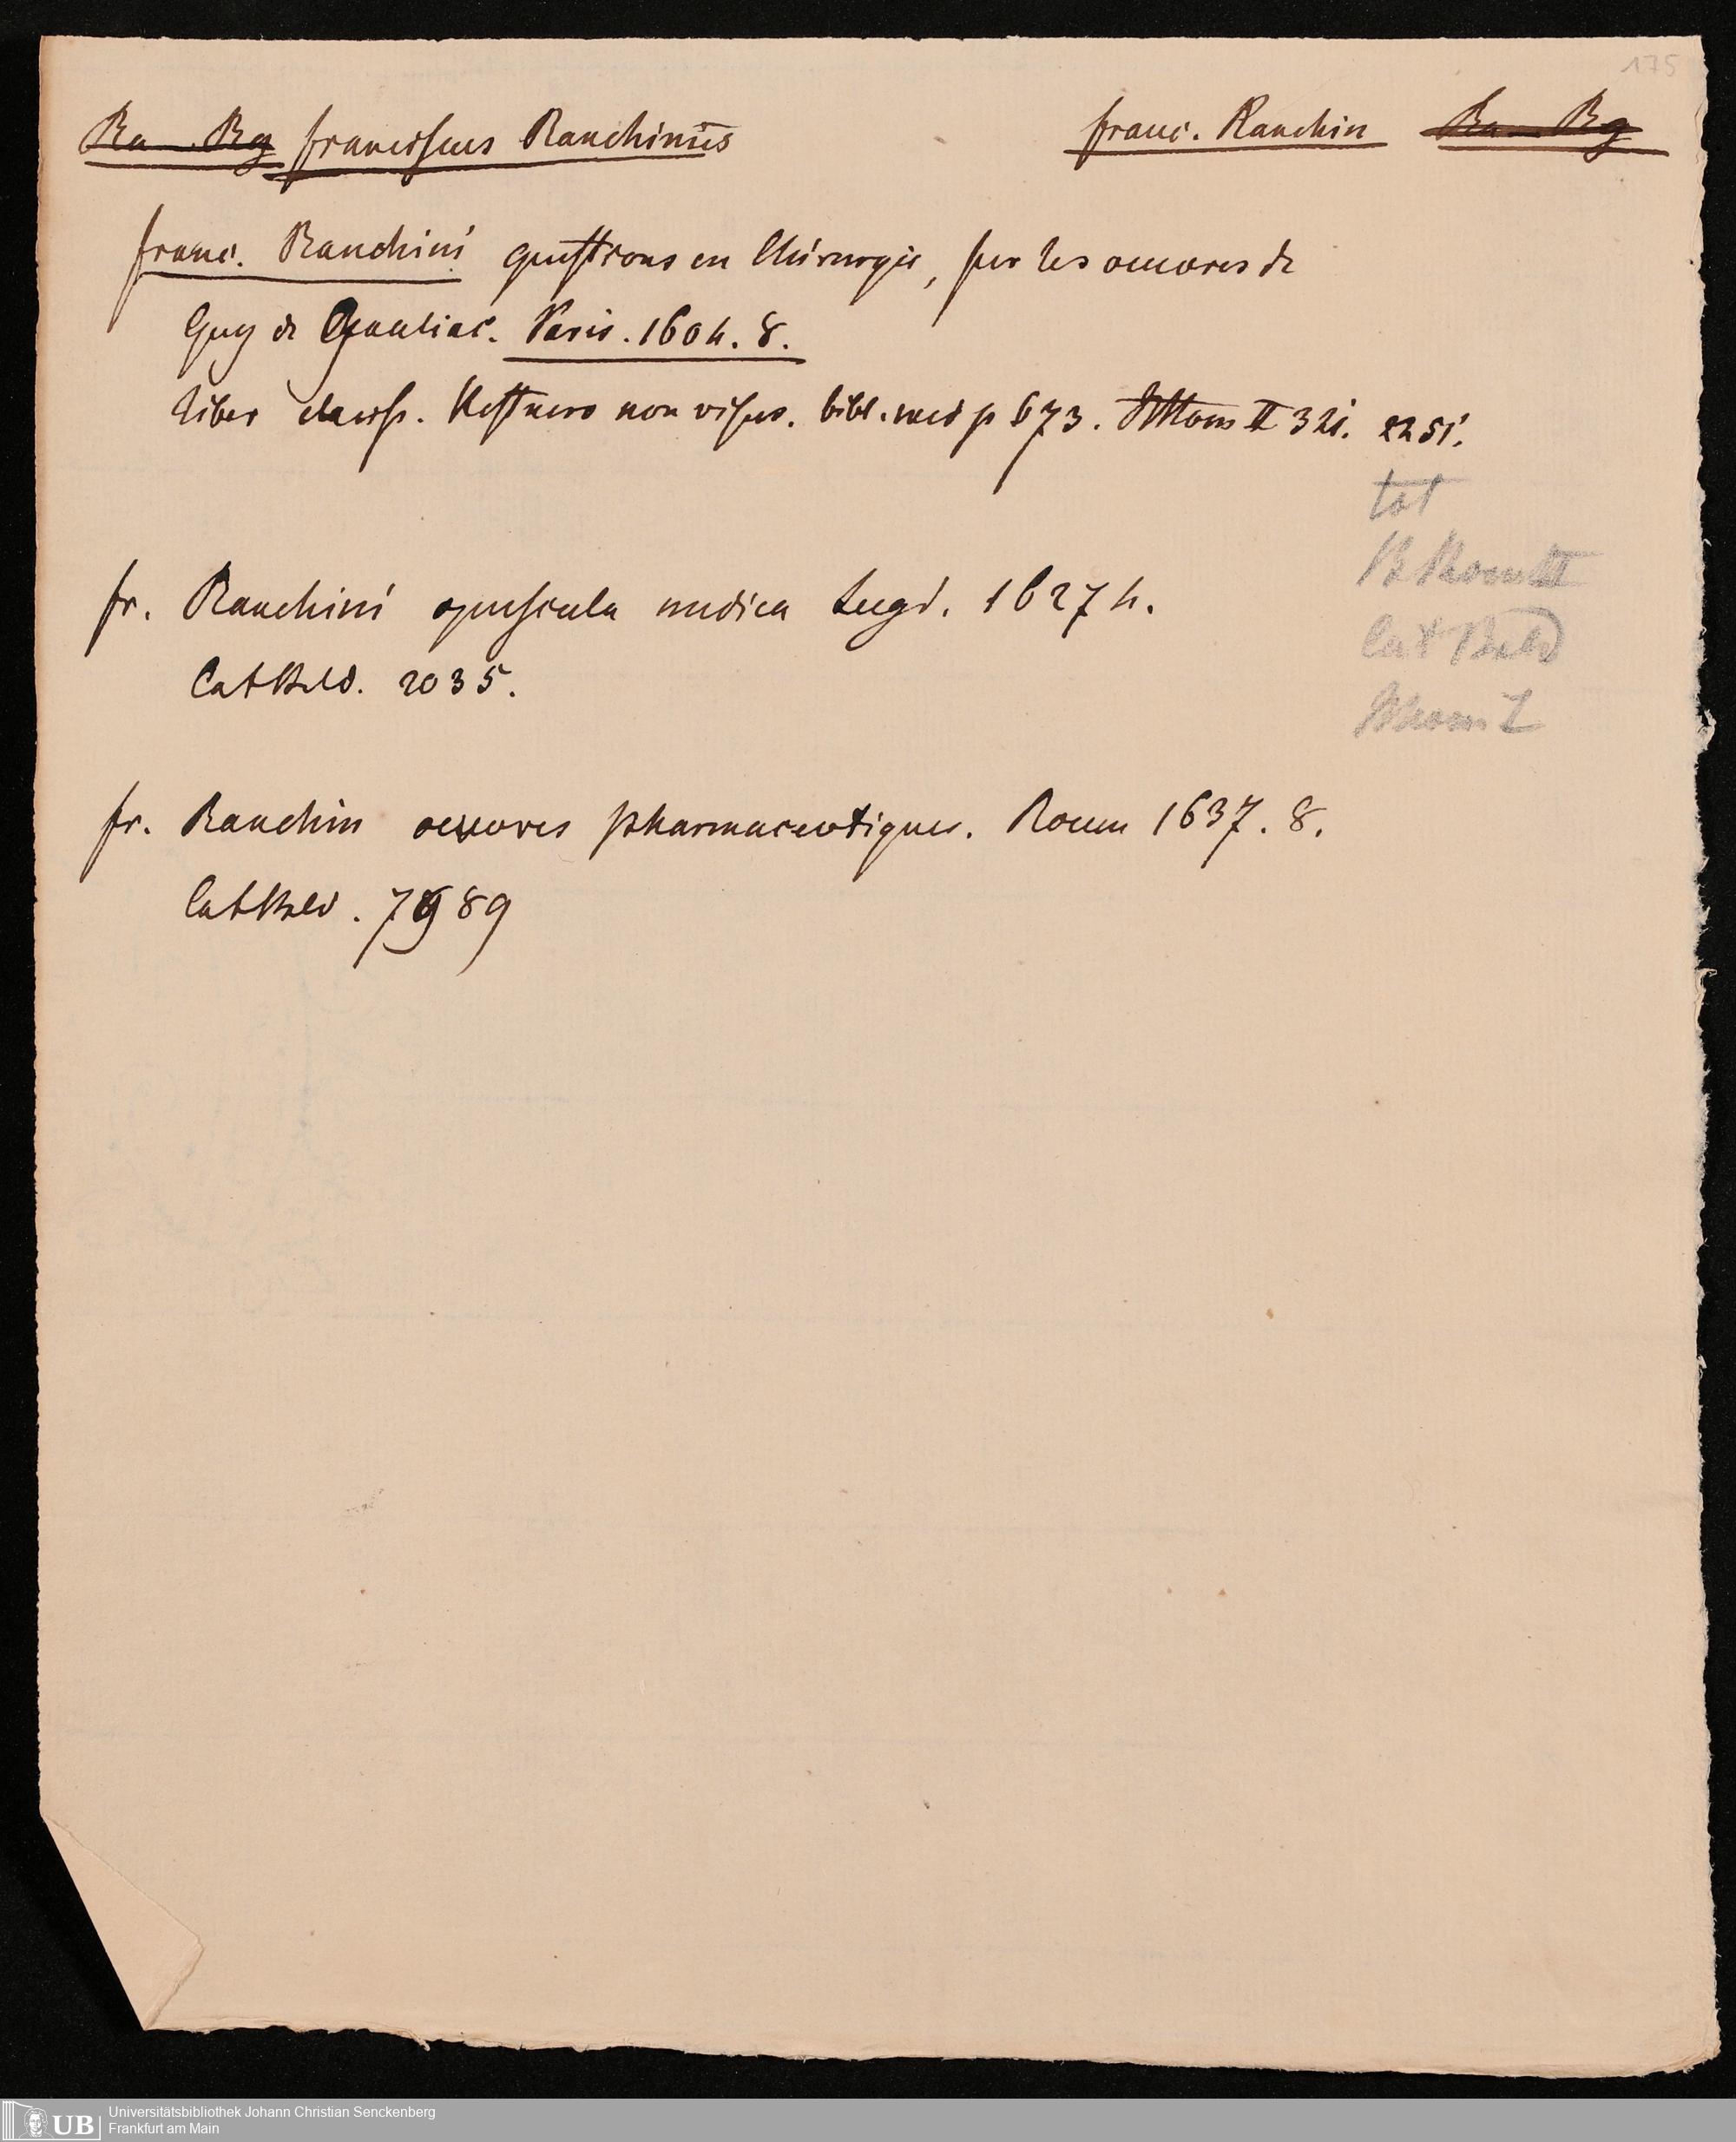 175
Ra – Rg franciscus Ranchinus
franc. Ranchin Ra – Rg
franc. Ranchini questions en Chirurgie, sur les oeuvres de
Guy de Cauliac. Paris. 1604. 8.
Liber clariss. Kestnero non visus. bibl. med p 673. II 321. 2251.
tot
fr. Ranchini opuscula medica Lugd. 1627 4.
Cat Bald. 2035.
Cat Bald
fr. Ranchin oeuvres pharmaceutiques. Rouen 1637. 8.
Cat Bald. 7989
UB
Universitätsbibliothek Johann Christian Senckenberg
Frankfurt am Main